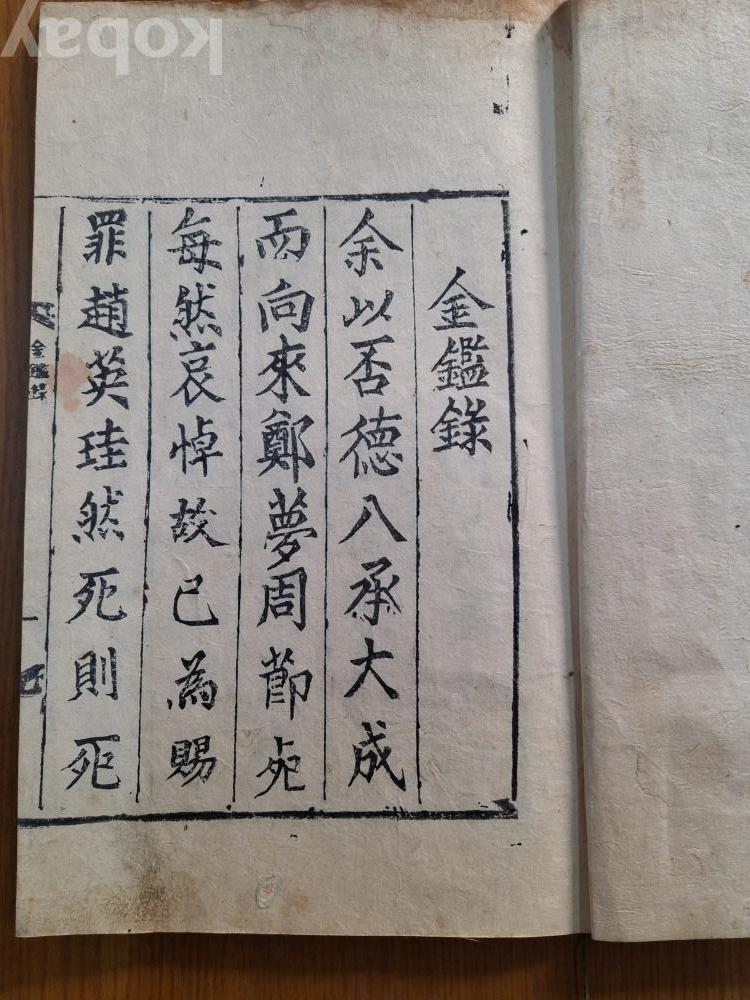 金鑑錄
余以否德八承大成
而向來鄭夢周節死
每然哀悼故已為賜
罪趙英珪然死則死
金鑑錄
一
kobay